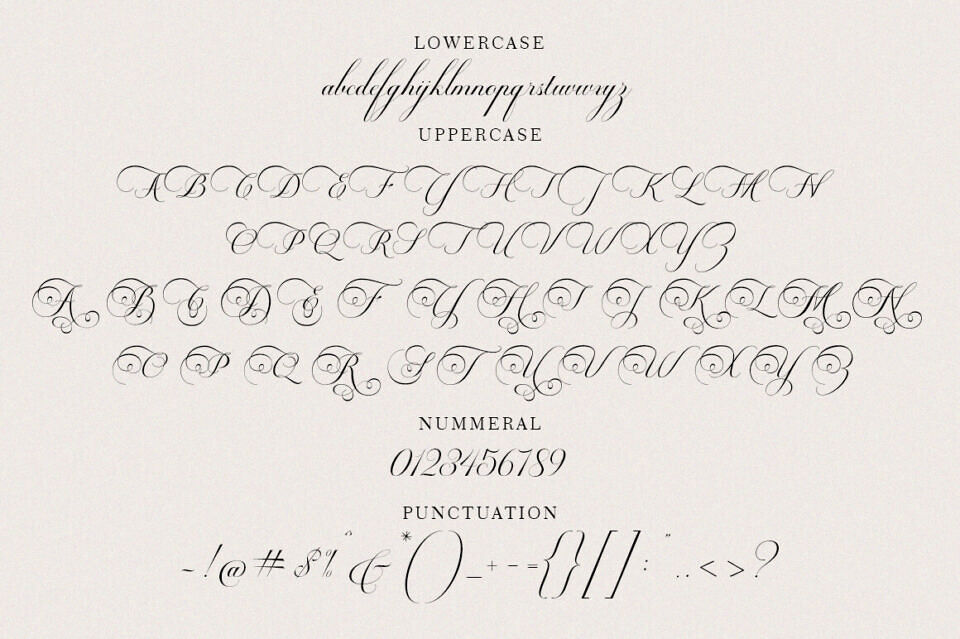 LOWERCASE
abcdefghijklmnopqrstuvwxyz
UPPERCASE
A B C D E F G H I J K L M N
O P Q R S T U V W X Y Z
A B C D E F G H I J K L M N
O P Q R S T U V W X Y Z
NUMMERAL
0123456789
PUNCTUATION
~ ! @ # $ % ^ & * ( ) _ + - = { } [ ] : " , . < > ?